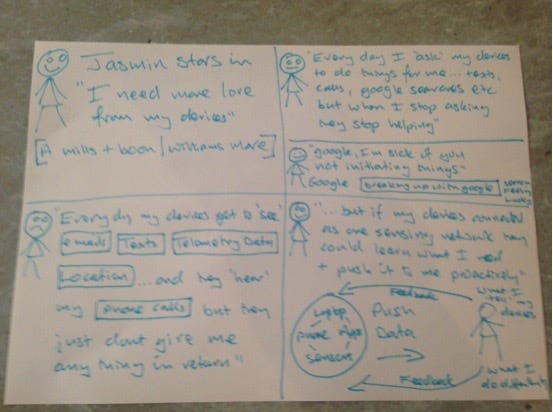 Jasmin stars in
"I need more love
from my devices"
[A mills + boon / williams Mare]
"Every day I 'ask' my devices
to do things for me... texts,
calls, google searches etc
but when I stop asking
they stop helping"
"google, I'm sick of you
not initiating things"
Google breaking up with google
"Everyday my devices get to 'see'
emails Texts Telemetry Data
Location ... and they 'hear'
my phone calls but they
just dont give me
any thing in return"
"...but if my devices connected
as one sensing network they
could learn what I need
+ push it to me proactively"
Feedback
what I
tell my
devices
Laptop
phone Apps
sensors
Push
Data
Feedback
what I
do differently